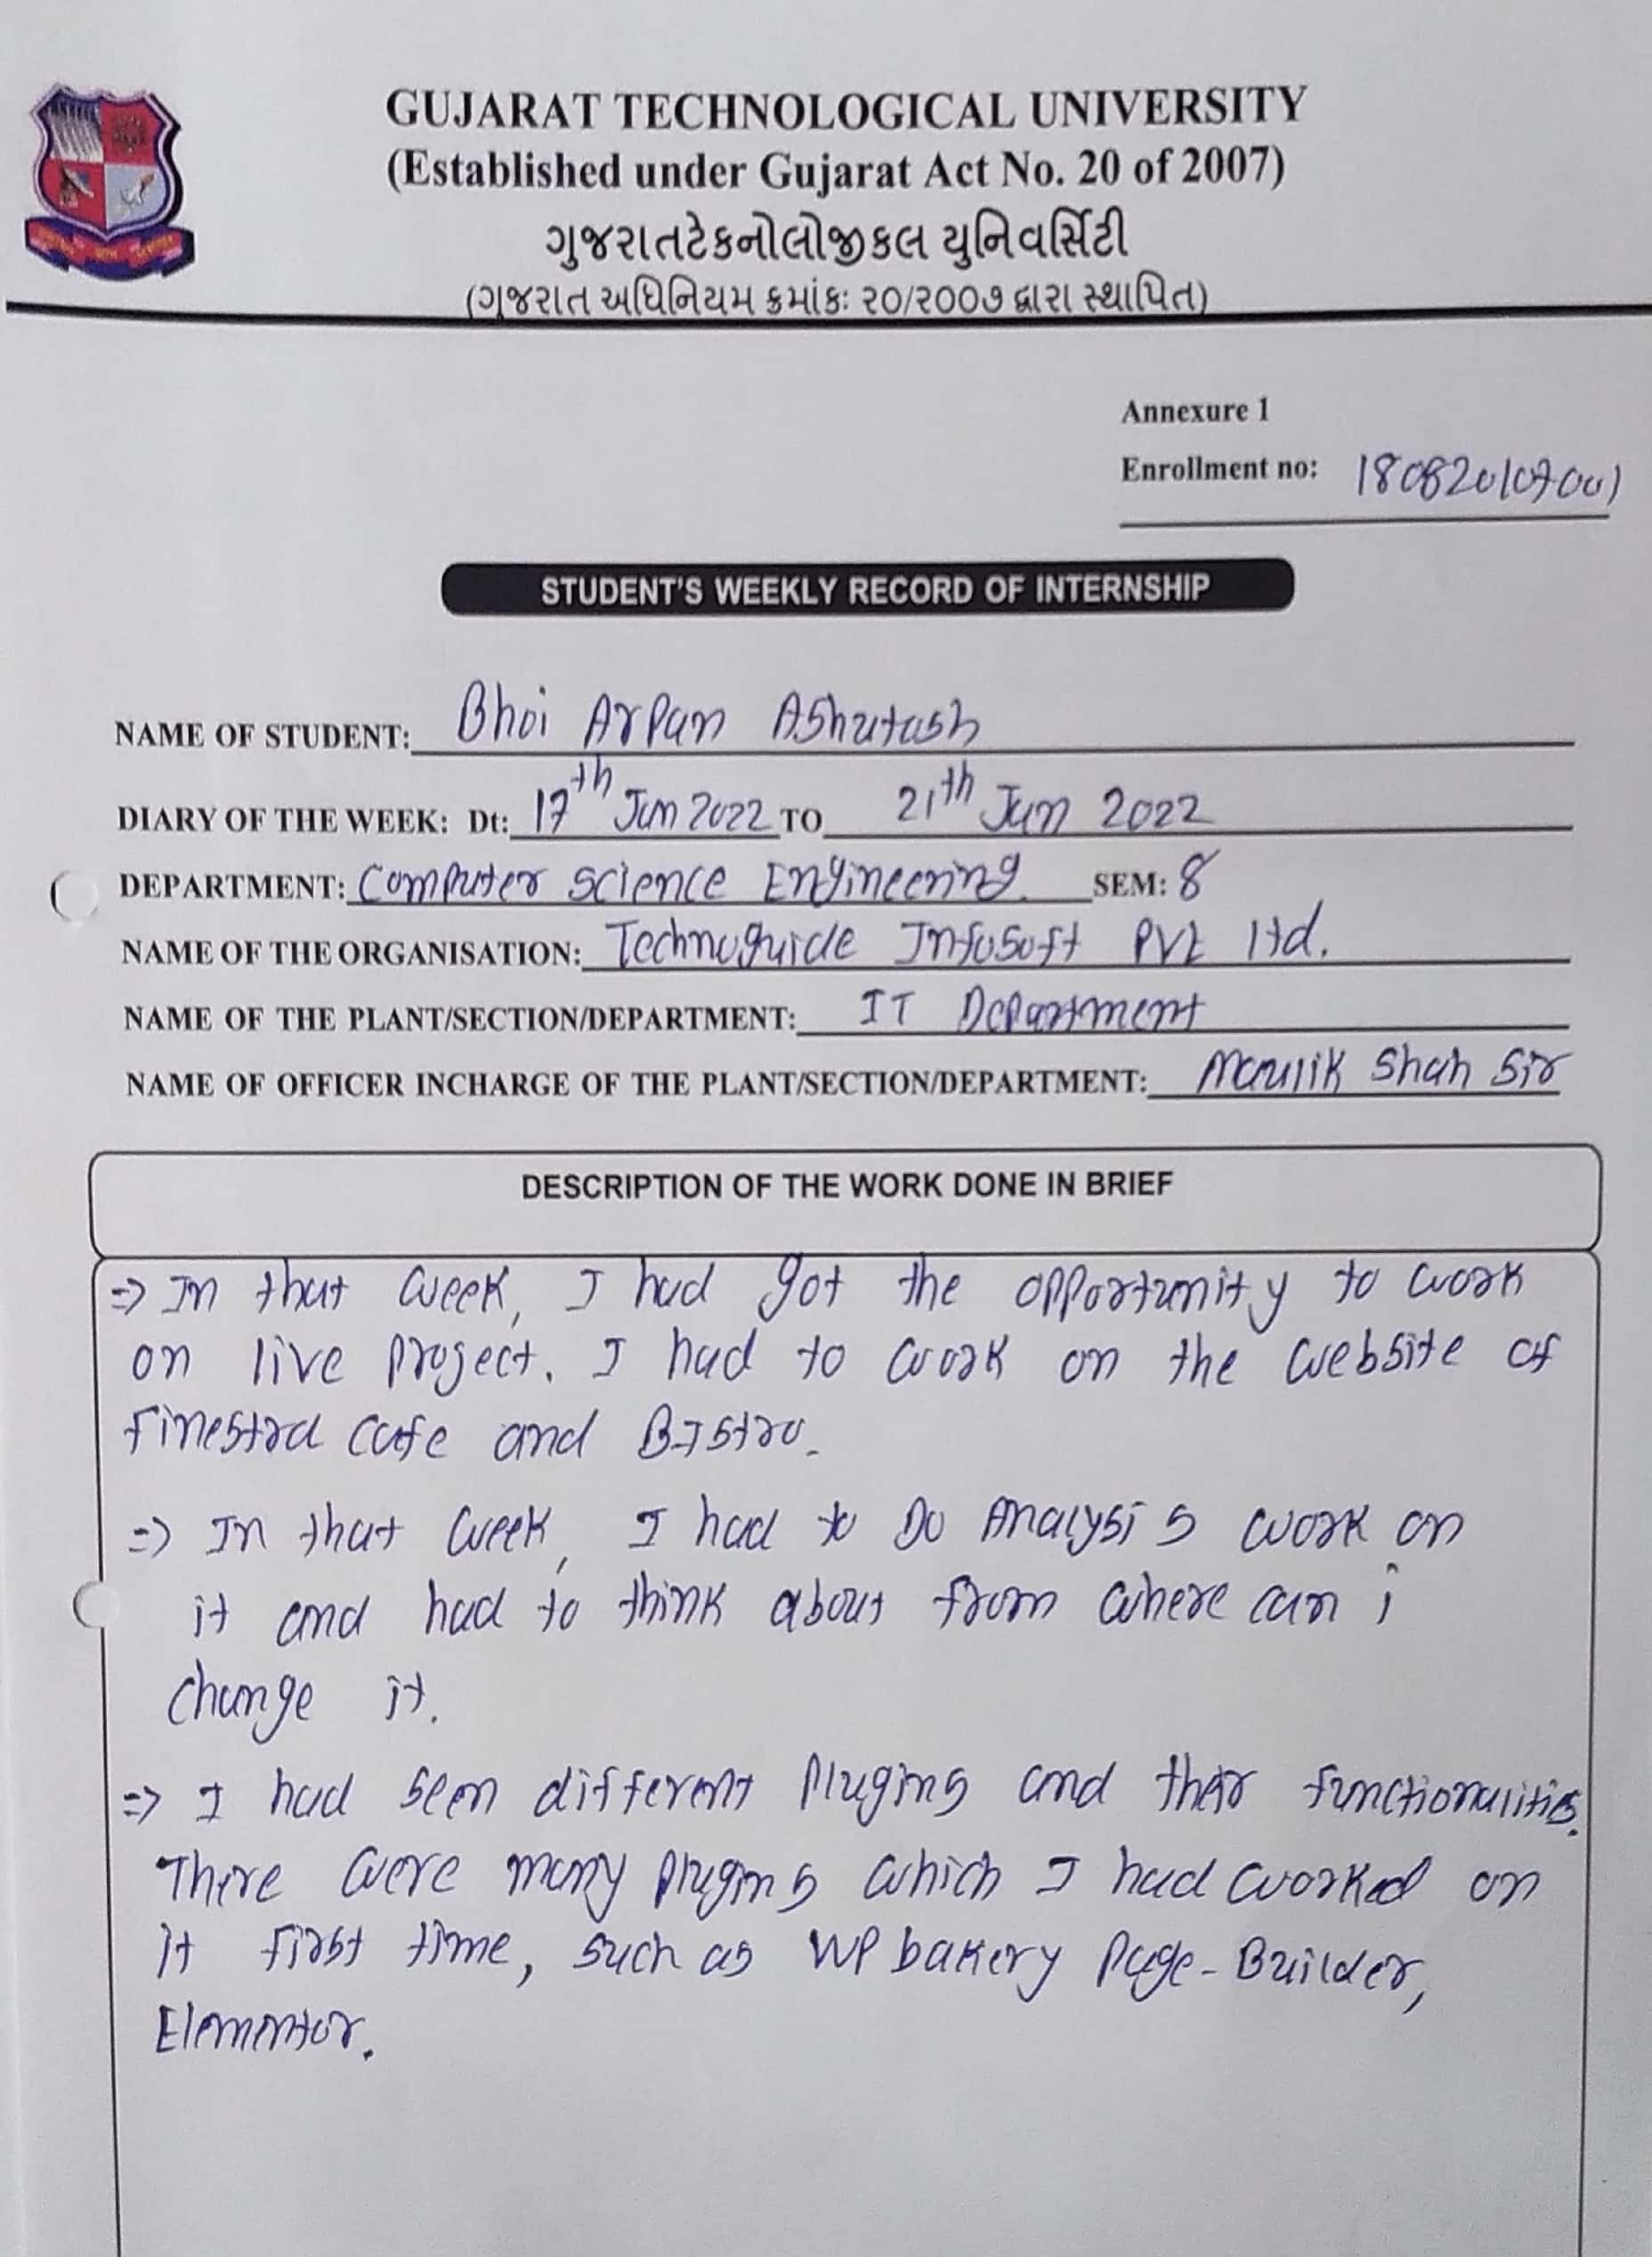 GUJARAT TECHNOLOGICAL UNIVERSITY
(Established under Gujarat Act No. 20 of 2007)
ગુજરાતટેકનોલોજીકલ યુનિવર્સિટી
(ગુજરાત અધિનિયમ ક્રમાંકઃ ૨૦/૨૦૦૭ દ્વારા સ્થાપિત)
Annexure 1
Enrollment no: 180820107001
STUDENT'S WEEKLY RECORD OF INTERNSHIP
NAME OF STUDENT: Bhoi Arpan Ashutosh
DIARY OF THE WEEK: Dt: 17th Jun 2022 TO 21th Jun 2022
DEPARTMENT: Computer Science Engineering. SEM: 8
NAME OF THE ORGANISATION: Technoguide Infosoft PVt ltd.
NAME OF THE PLANT/SECTION/DEPARTMENT: IT Department
NAME OF OFFICER INCHARGE OF THE PLANT/SECTION/DEPARTMENT: Maulik Shah Sir
DESCRIPTION OF THE WORK DONE IN BRIEF
⇒ In that week, I had got the opportunity to work
on live project. I had to work on the website of
Finestra cafe and BIstro.
⇒ In that week, I had to Do Analysis work on
it and had to think about from where can i
change it.
⇒ I had seen different plugins and their functionalities.
There were many plugins which I had worked on
it first time, such as WP bakery Page-Builder,
Elementor.